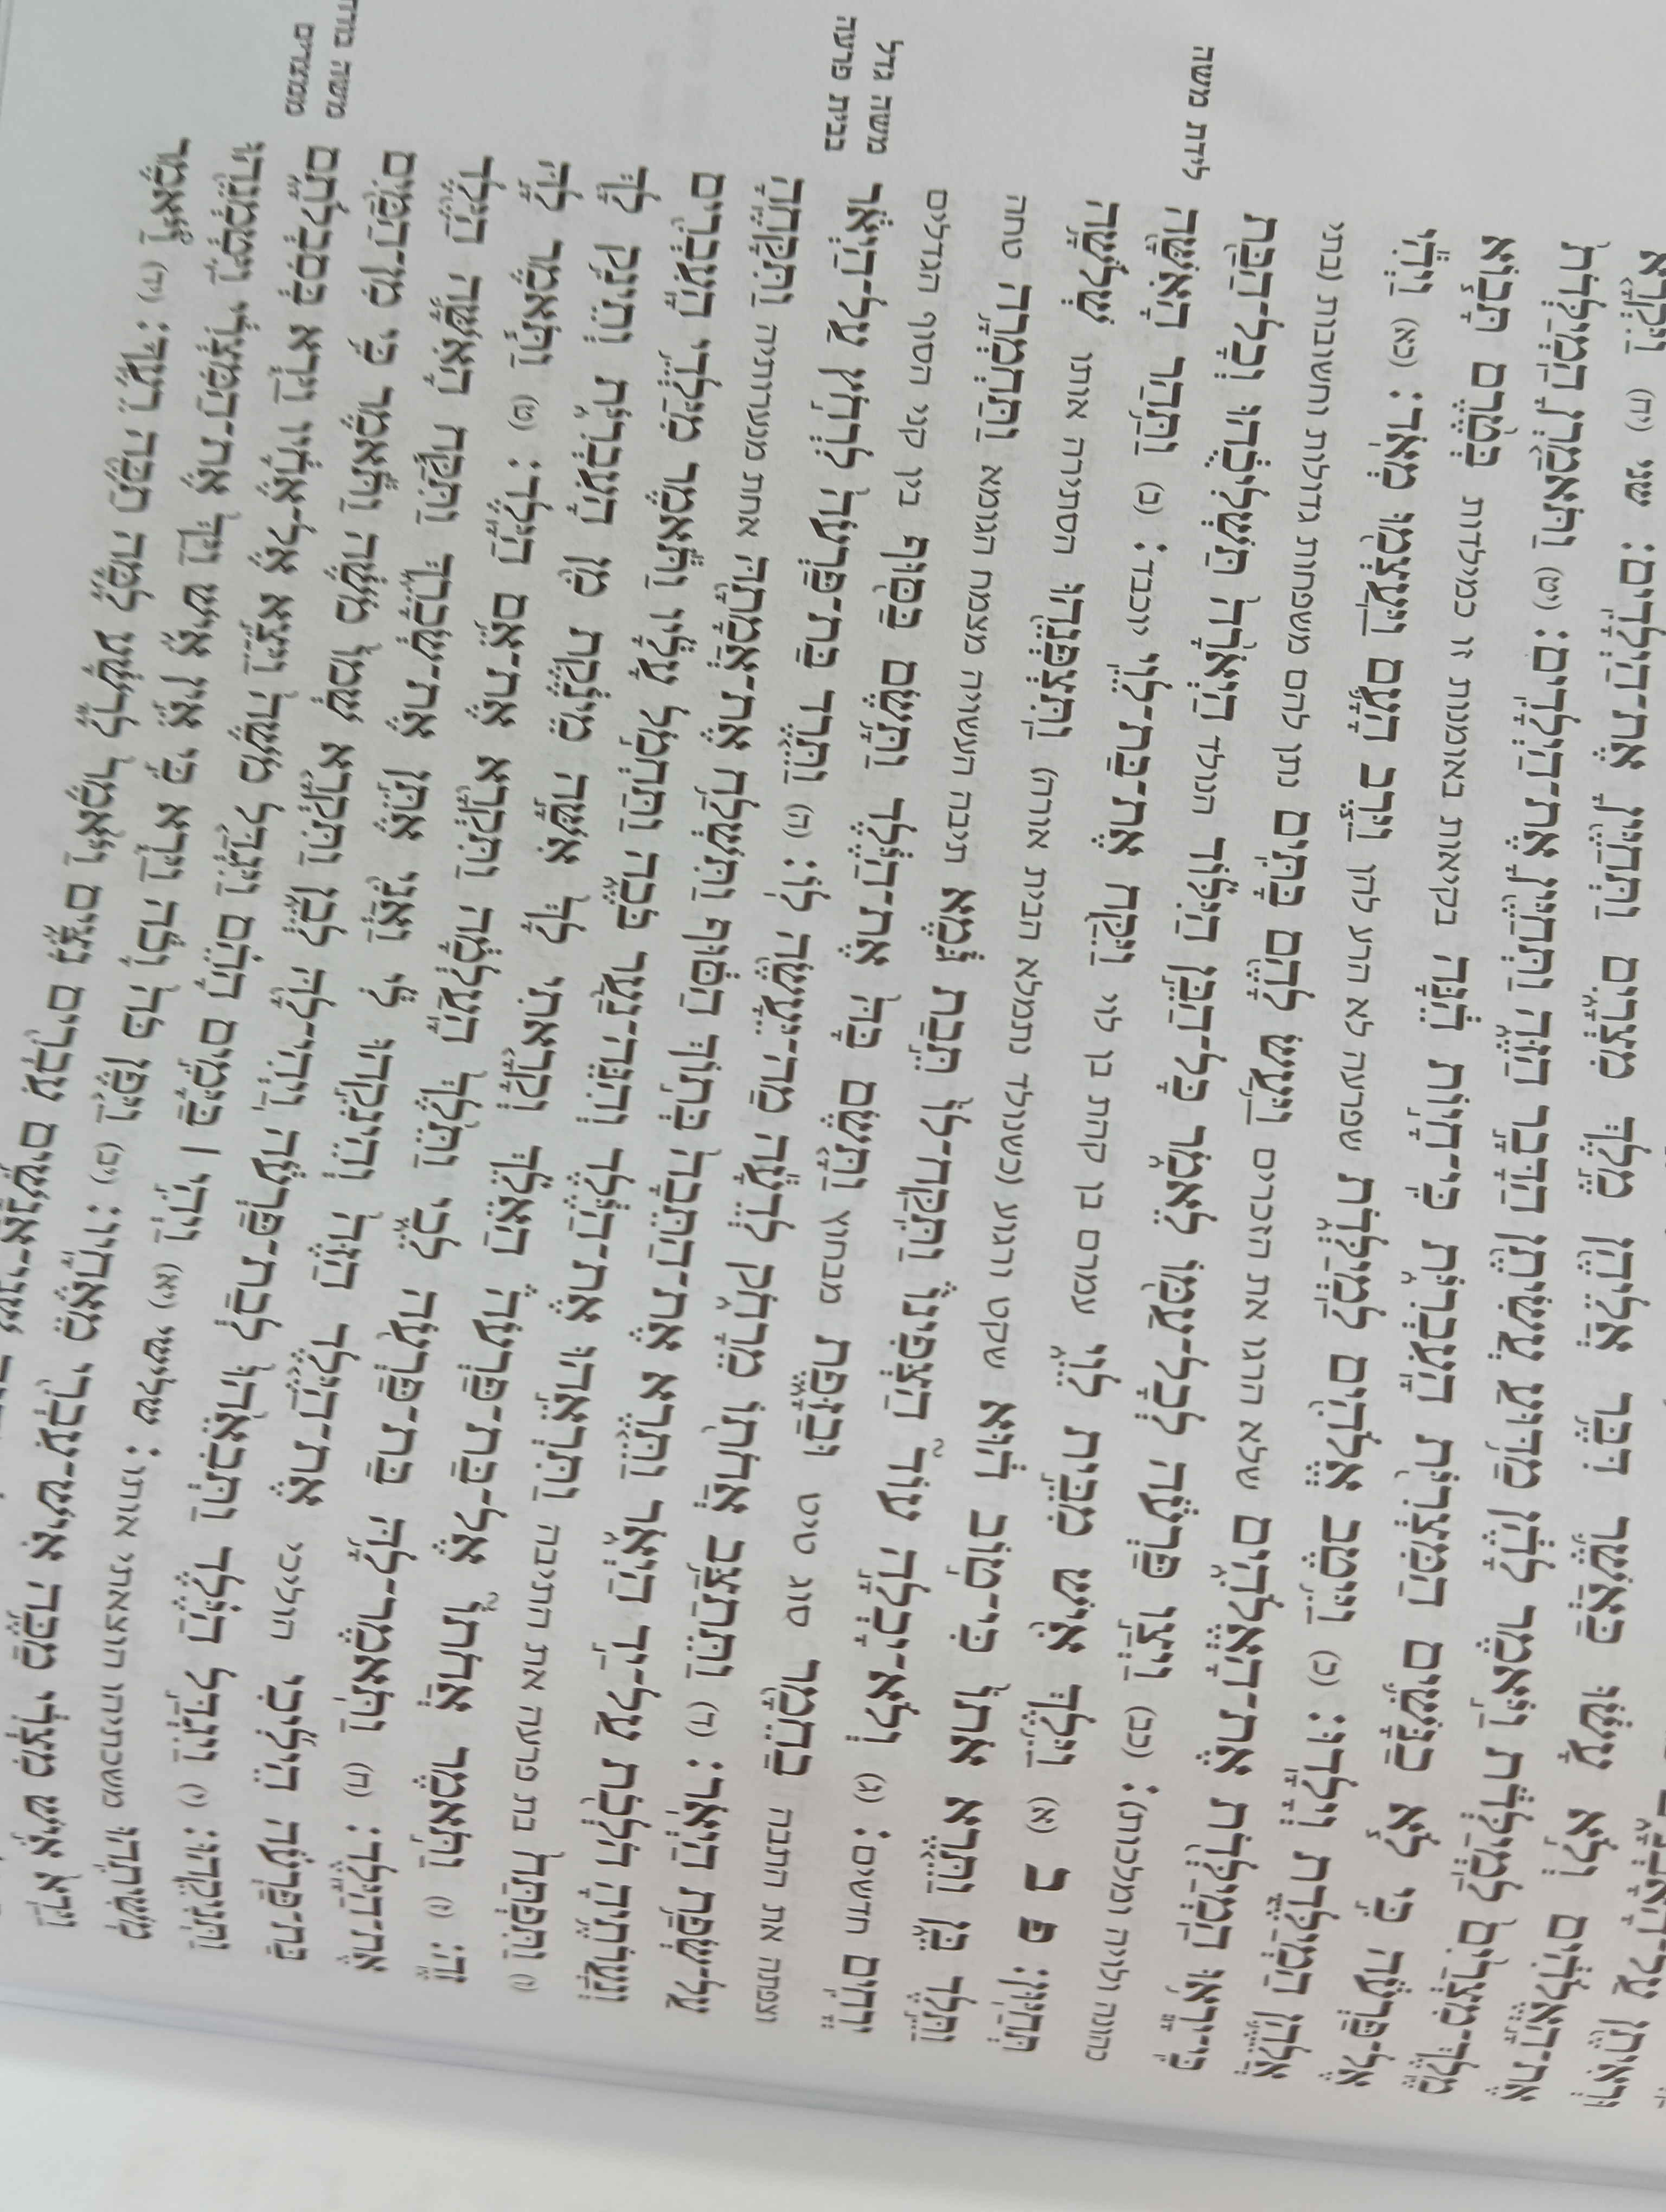 וּרְאִיתֶ֖ן עַל־הָאָבְנָ֑יִם
אֶת־הָ֣אֱלֹהִ֔ים וְלֹ֣א עָשׂ֔וּ כַּאֲשֶׁ֛ר דִּבֶּ֥ר אֲלֵיהֶ֖ן מֶ֣לֶךְ מִצְרָ֑יִם וַתְּחַיֶּ֖יןָ אֶת־הַיְלָדִֽים: שני (יח) וַיִּקְרָ֤א
מֶֽלֶךְ־מִצְרַ֙יִם֙ לַֽמְיַלְּדֹ֔ת וַיֹּ֣אמֶר לָהֶ֔ן מַדּ֥וּעַ עֲשִׂיתֶ֖ן הַדָּבָ֣ר הַזֶּ֑ה וַתְּחַיֶּ֖יןָ אֶת־הַיְלָדִֽים: (יט) וַתֹּאמַ֤רְןָ הַֽמְיַלְּדֹת֙
אֶל־פַּרְעֹ֔ה כִּ֣י לֹ֧א כַנָּשִׁ֛ים הַמִּצְרִיֹּ֖ת הָֽעִבְרִיֹּ֑ת כִּֽי־חָי֣וֹת הֵ֔נָּה בקיאות באומנות זו כמילדות בְּטֶ֨רֶם תָּב֧וֹא
אֲלֵהֶ֛ן הַמְיַלֶּ֖דֶת וְיָלָֽדוּ: (כ) וַיֵּ֥יטֶב אֱלֹהִ֖ים לַֽמְיַלְּדֹ֑ת שפרעה לא הרע להן וַיִּ֧רֶב הָעָ֛ם וַיַּֽעַצְמ֖וּ מְאֹֽד: (כא) וַיְהִ֕י
כִּֽי־יָֽרְא֥וּ הַֽמְיַלְּדֹ֖ת אֶת־הָאֱלֹהִ֑ים שלא הרגו את הזכרים וַיַּ֥עַשׂ לָהֶ֖ם בָּתִּֽים נתן להם משפחות גדולות וחשובות (בתי
כהונה ולויה ומלכות): (כב) וַיְצַ֣ו פַּרְעֹ֔ה לְכָל־עַמּ֖וֹ לֵאמֹ֑ר כָּל־הַבֵּ֣ן הַיִּלּ֗וֹד הנולד הַיְאֹ֙רָה֙ תַּשְׁלִיכֻ֔הוּ וְכָל־הַבַּ֖ת
תְּחַיּֽוּן: פ ב (א) וַיֵּ֥לֶךְ אִ֖ישׁ מִבֵּ֣ית לֵוִ֑י עמרם בן קהת בן לוי וַיִּקַּ֖ח אֶת־בַּת־לֵוִֽי יוכבד: (ב) וַתַּ֥הַר הָאִשָּׁ֖ה
לידת משה
וַתֵּ֣לֶד בֵּ֑ן וַתֵּ֤רֶא אֹתוֹ֙ כִּי־ט֣וֹב ה֔וּא שקט ורגוע (כשנולד נתמלא הבית אורה) וַֽתִּצְפְּנֵ֖הוּ הסתירה אותו שְׁלֹשָׁ֥ה
יְרָחִֽים חדשים: (ג) וְלֹא־יָכְלָ֣ה עוֹד֮ הַצְּפִינוֹ֒ וַתִּֽקַּֽח־לוֹ֙ תֵּ֣בַת גֹּ֔מֶא תיבה העשויה מצמח הגומא וַתַּחְמְרָ֥ה טחה
וצפתה את התבה בַחֵמָ֖ר סוג טיט וּבַזָּ֑פֶת מבחוץ וַתָּ֤שֶׂם בָּהּ֙ אֶת־הַיֶּ֔לֶד וַתָּ֥שֶׂם בַּסּ֖וּף בין קני הסוף הגדלים
עַל־שְׂפַ֥ת הַיְאֹֽר: (ד) וַתֵּתַצַּ֥ב אֲחֹת֖וֹ מֵרָחֹ֑ק לְדֵעָ֕ה מַה־יֵּעָשֶׂ֖ה לֽוֹ: (ה) וַתֵּ֤רֶד בַּת־פַּרְעֹה֙ לִרְחֹ֣ץ עַל־הַיְאֹ֔ר
משה גדל
בבית פרעה
וְנַעֲרֹתֶ֥יהָ הֹלְכֹ֖ת עַל־יַ֣ד הַיְאֹ֑ר וַתֵּ֤רֶא אֶת־הַתֵּבָה֙ בְּת֣וֹךְ הַסּ֔וּף וַתִּשְׁלַ֥ח אֶת־אֲמָתָ֖הּ אחת מנערותיה וַתִּקָּחֶֽהָ
(ו) וַתִּפְתַּח֙ בת פרעה את התיבה וַתִּרְאֵ֣הוּ אֶת־הַיֶּ֔לֶד וְהִנֵּה־נַ֖עַר בֹּכֶ֑ה וַתַּחְמֹ֣ל עָלָ֔יו וַתֹּ֕אמֶר מִיַּלְדֵ֥י הָֽעִבְרִ֖ים
זֶֽה: (ז) וַתֹּ֣אמֶר אֲחֹתוֹ֮ אֶל־בַּת־פַּרְעֹה֒ הַאֵלֵ֗ךְ וְקָרָ֤אתִי לָךְ֙ אִשָּׁ֣ה מֵינֶ֔קֶת מִ֖ן הָעִבְרִיֹּ֑ת וְתֵינִ֥ק לָ֖ךְ
אֶת־הַיָּֽלֶד: (ח) וַתֹּֽאמֶר־לָ֥הּ בַּת־פַּרְעֹ֖ה לֵ֑כִי וַתֵּ֙לֶךְ֙ הָֽעַלְמָ֔ה וַתִּקְרָ֖א אֶת־אֵ֥ם הַיָּֽלֶד: (ט) וַתֹּ֧אמֶר לָ֣הּ
בַּת־פַּרְעֹ֗ה הֵילִ֜יכִי הוליכי אֶת־הַיֶּ֤לֶד הַזֶּה֙ וְהֵינִקִ֣הוּ לִ֔י וַאֲנִ֖י אֶתֵּ֣ן אֶת־שְׂכָרֵ֑ךְ וַתִּקַּ֧ח הָאִשָּׁ֛ה הַיֶּ֖לֶד
וַתְּנִיקֵֽהוּ: (י) וַיִּגְדַּ֣ל הַיֶּ֗לֶד וַתְּבִאֵ֙הוּ֙ לְבַת־פַּרְעֹ֔ה וַֽיְהִי־לָ֖הּ לְבֵ֑ן וַתִּקְרָ֤א שְׁמוֹ֙ מֹשֶׁ֔ה וַתֹּ֕אמֶר כִּ֥י מִן־הַמַּ֖יִם
מְשִׁיתִֽהוּ משכתיהו הוצאתי אותו: שלישי (יא) וַיְהִ֣י ׀ בַּיָּמִ֣ים הָהֵ֗ם וַיִּגְדַּ֤ל מֹשֶׁה֙ וַיֵּצֵ֣א אֶל־אֶחָ֔יו וַיַּ֖רְא בְּסִבְלֹתָ֑ם
משה בורח
ממצרים
וַיַּרְא֙ אִ֣ישׁ מִצְרִ֔י מַכֶּ֥ה אִישׁ־עִבְרִ֖י מֵאֶחָֽיו: (יב) וַיִּ֤פֶן כֹּה֙ וָכֹ֔ה וַיַּ֖רְא כִּ֣י אֵ֣ין אִ֑ישׁ וַיַּךְ֙ אֶת־הַמִּצְרִ֔י וַֽיִּטְמְנֵ֖הוּ
שְׁנֵֽי־אֲנָשִׁ֥ים עִבְרִ֖ים נִצִּ֑ים וַיֹּ֙אמֶר֙ לָֽרָשָׁ֔ע לָ֥מָּה תַכֶּ֖ה רֵעֶֽךָ: (יד) וַ֠יֹּאמֶר